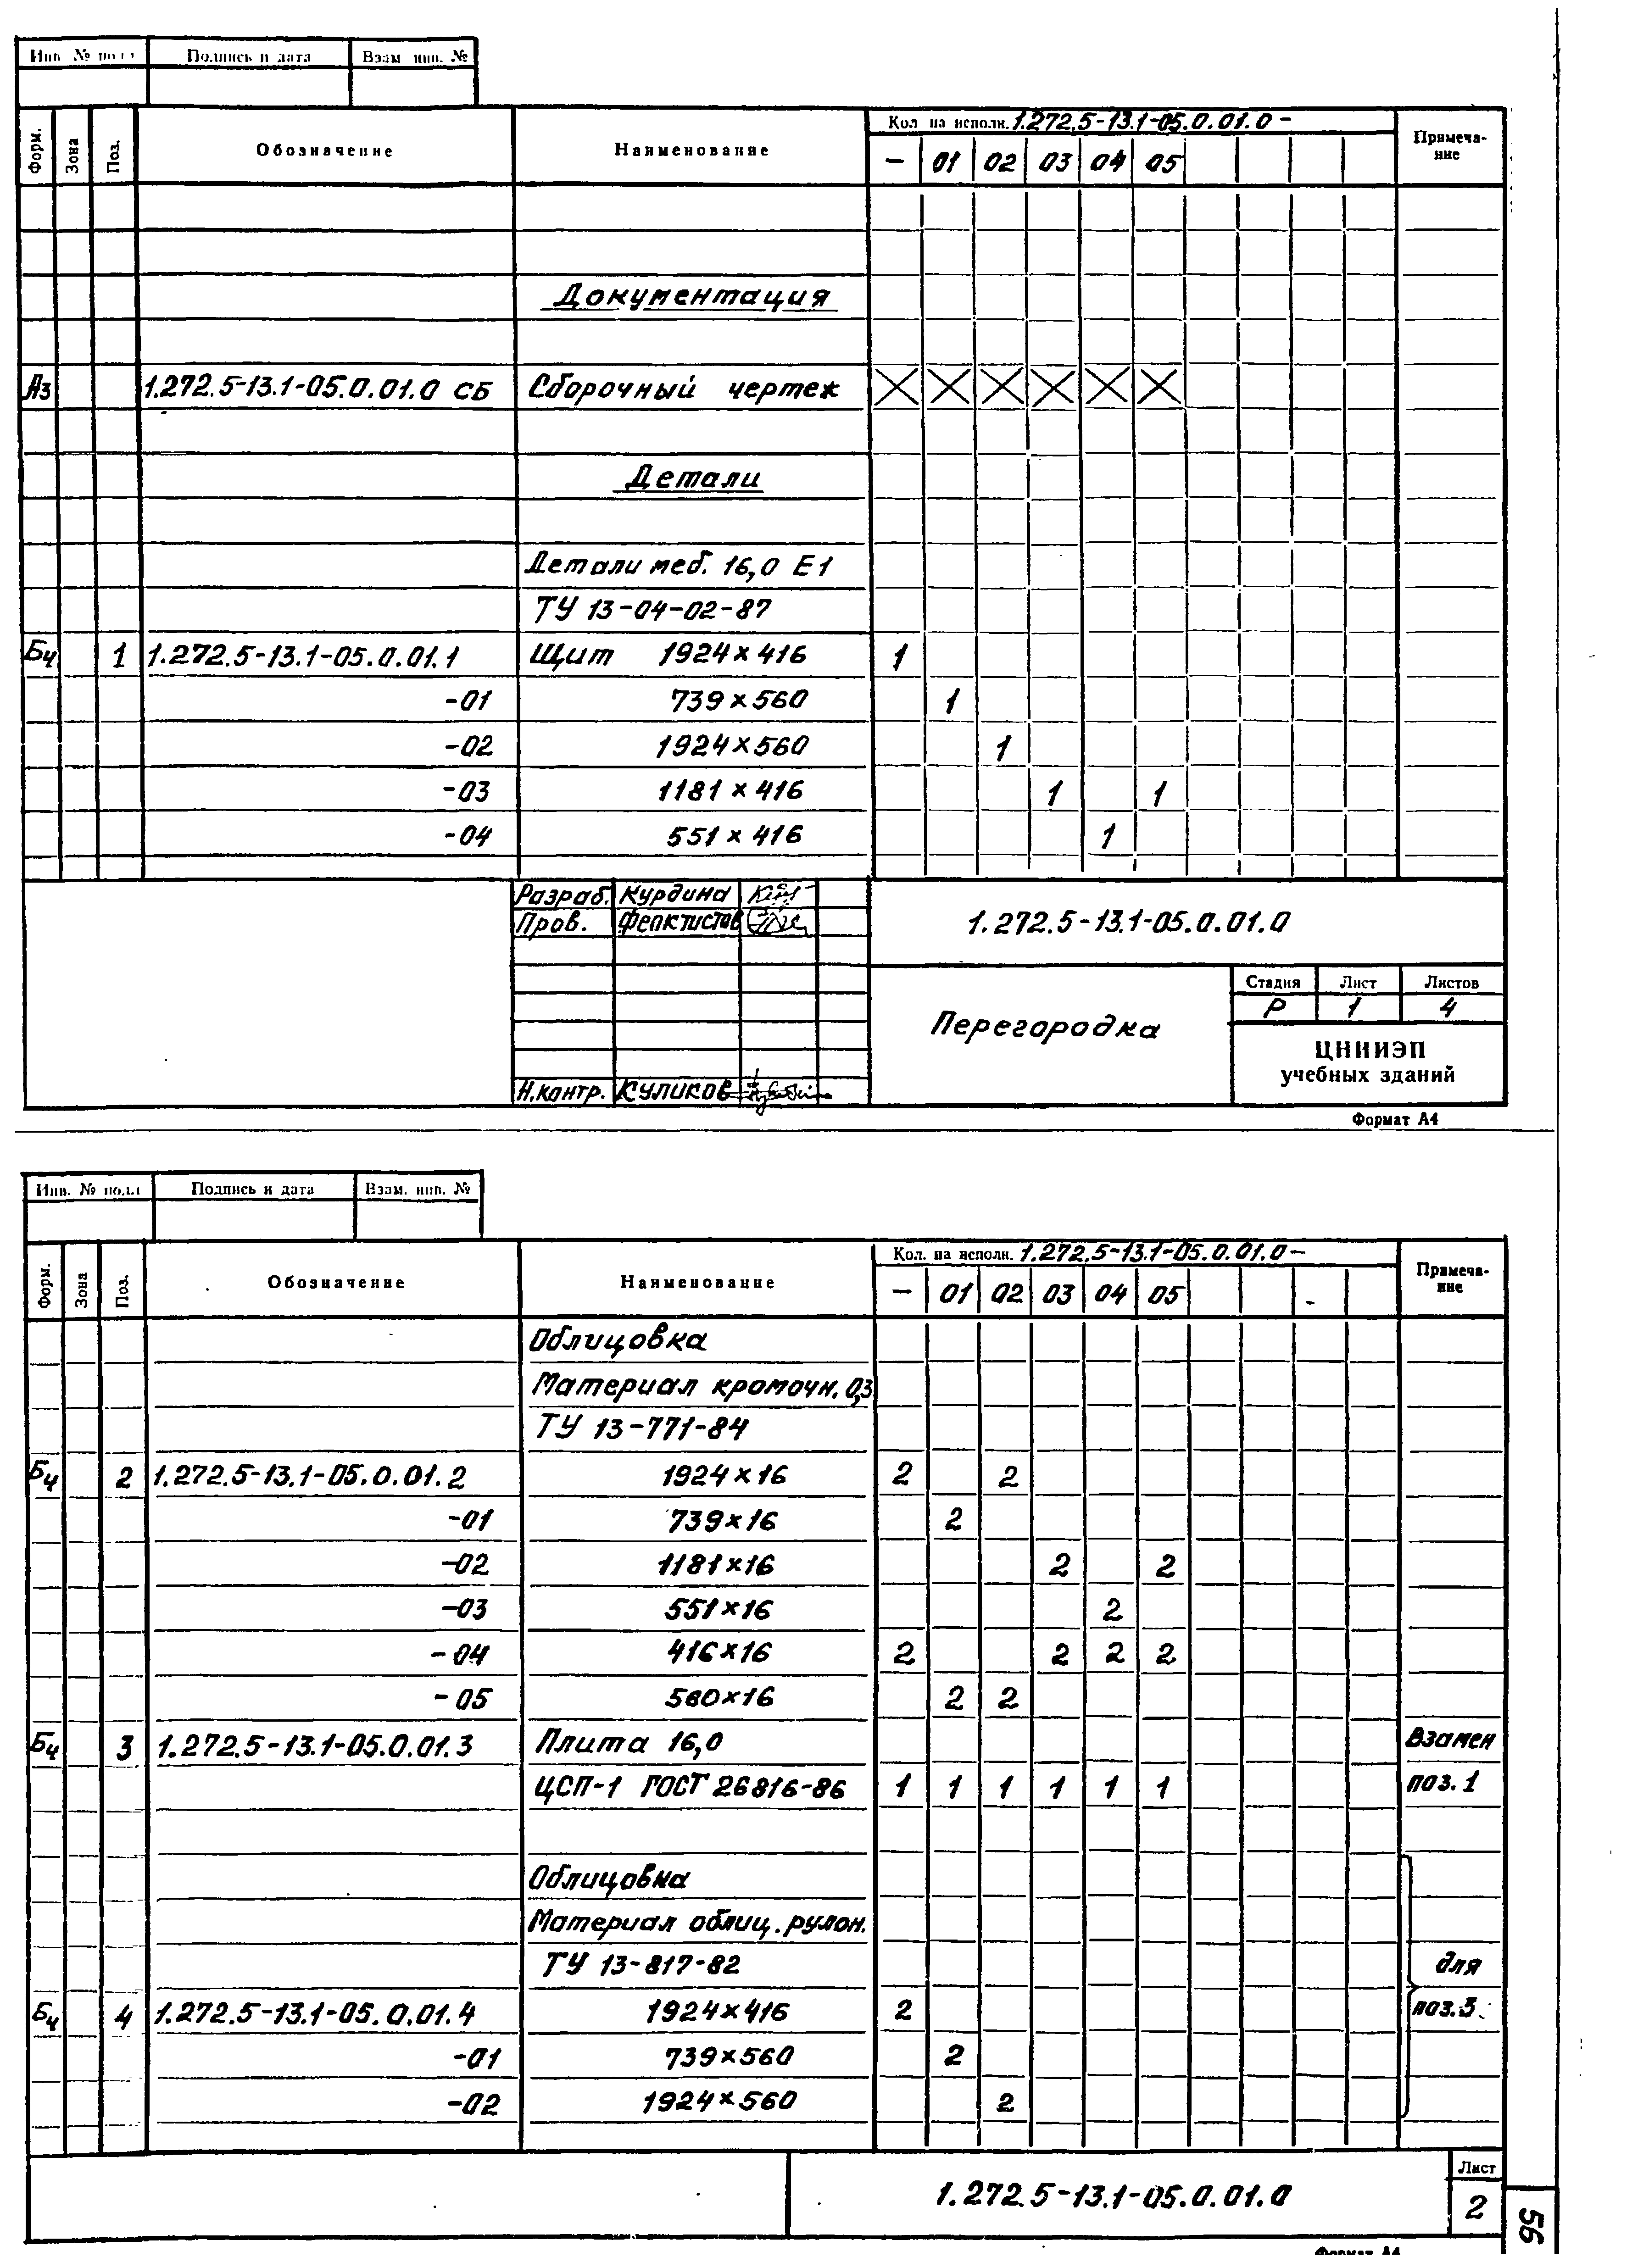 Инв. № подл Подпись и дата Взам. инв. №
Форм. Зона Поз. Обозначение Наименование Кол на исполн. 1.272.5-13.1-05.0.01.0 – Примеча-
ние
– 01 02 03 04 05
Документация
А3 1.272.5-13.1-05.0.01.0 СБ Сборочный чертеж
Детали
Детали меб. 16,0 Е1
ТУ 13-04-02-87
Бч 1 1.272.5-13.1-05.0.01.1 Щит 1924×416 1
-01 739×560 1
-02 1924×560 1
-03 1181×416 1 1
-04 551×416 1
Разраб. Курдина
Пров. Феоктистов
Н.контр. Куликов
1.272.5-13.1-05.0.01.0
Перегородка
Стадия Лист Листов
Р 1 4
ЦНИИЭП
учебных зданий
Формат А4
Инв. № подл Подпись и дата Взам. инв. №
Форм. Зона Поз. Обозначение Наименование Кол. на исполн. 1.272.5-13.1-05.0.01.0 – Примеча-
ние
– 01 02 03 04 05
Облицовка
Материал кромочн. 0,3
ТУ 13-771-84
Бч 2 1.272.5-13.1-05.0.01.2 1924×16 2 2
-01 739×16 2
-02 1181×16 2 2
-03 551×16 2
-04 416×16 2 2 2 2
-05 560×16 2 2
Бч 3 1.272.5-13.1-05.0.01.3 Плита 16,0 Взамен
ЦСП-1 ГОСТ 26816-86 1 1 1 1 1 1 поз. 1
Облицовка
Материал облиц. рулон.
ТУ 13-817-82 для
Бч 4 1.272.5-13.1-05.0.01.4 1924×416 2 поз. 3
-01 739×560 2
-02 1924×560 2
1.272.5-13.1-05.0.01.0
Лист
2
56
Формат А4